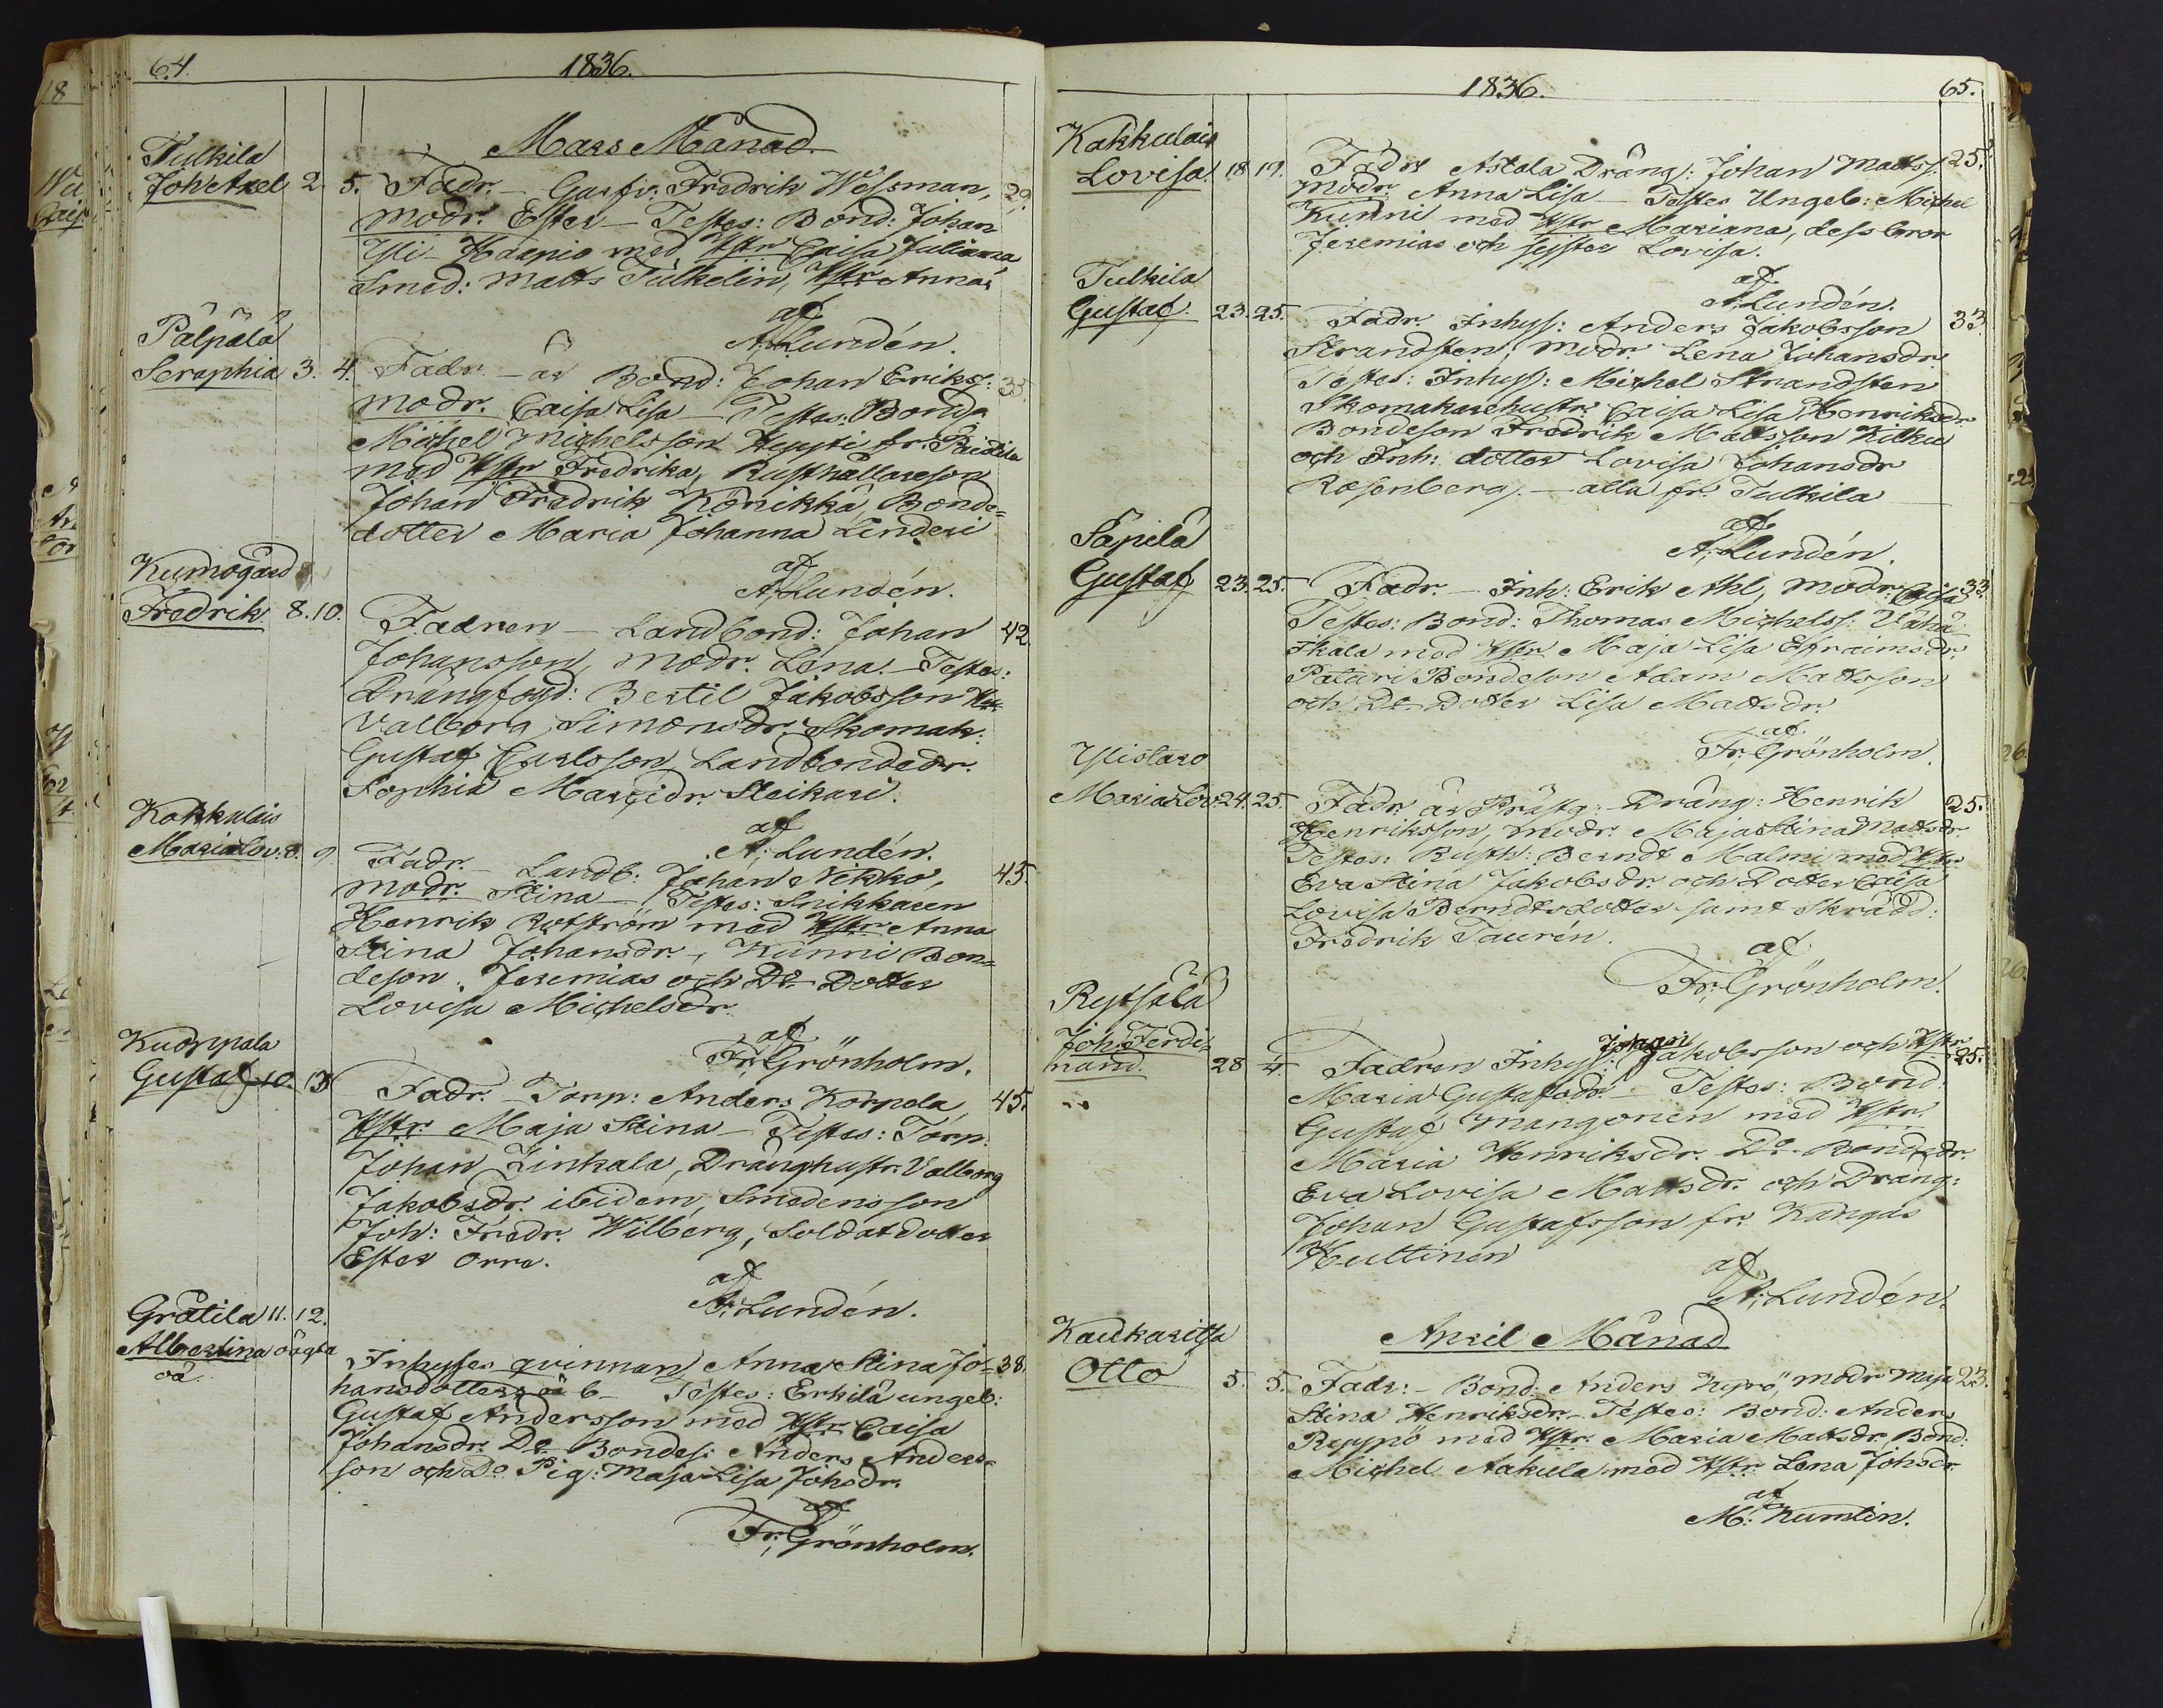 64.
1836.
Mars Månad.
Tulkila
Joh Axel 2. 5. Fadr. - Gustv. Fredrik Wessman, 29.
modr. Ester - Testes: Bond: Johan
Yli-Haapio med Hstr Caisa Juliana,
Smed: Matts Tulkelin, Hstr Anna,
af
A. Lundén.
Pälpälä
Seraphia 3. 4. Fadr. - är Bond: Johan Eriks: 33.
modr. Caisa Lisa - Testes: Bond
Michel Michelsson Heysti fr. Paidila
med Hstr Fredrika, Rusthållareson
Johan Fredrik Könikkä, Bonde=
dotter Maria Johanna Linderi
af
A. Lundén.
Kumogård
Fredrik 8. 10. Fadren - Landbond: Johan 42.
Johansson, modr. Lena - Testes:
Drängfogd: Bertil Jakobsson Hstr
Valborg Simonsdr. Skomak:
Gustaf Carlsson, Landbondedr.
Sophia Marcidr. Sleikari.
af
A. Lundén.
Kakkulais
Maria Lov: 8. 9. Fadr. - Landb: Johan Nikko, 45.
modr. Stina - Testes: Snikkaren
Henrik Rotström med Hstr Anna
Stina Johansdr. - Kunni Bon=
deson Jeremias och Do Dotter
Lovisa Michelsdr.
af
Fr. Grönholm.
Kuorpala
Gustaf 10. 13. Fadr. - Torp: Anders Korpela, 45.
Hstr Maja Stina - Testes: Torp:
Johan Linkala, Dränghustr. Valborg
Jakobsdr. ibidem, Smedensson
Joh: Fredr. Wilberg, Soldatdotter
Ester Orre.
af
A. Lundén.
Gråtila 11. 12.
Albertina oägta Inhyses qvinnan Anna Stina Jo- 38.
oä. hansdotters oä b - Testes: Erkilä ungeb:
Gustaf Andersson med Hstr Caisa
Johansdr. Do Bondes: Anders Anders=
son och Do Pig: Maja Lisa Johsdr.
af
Fr. Grönholm.
1836.
65.
Kakkulais
Lovisa. 18. 19. Fadr Astala Dräng: Johan Matts: 25.
modr. Anna Lisa - Testes Ungeb: Michel
Kunni med Hstr Mariana, dess bror
Jeremias och syster Lovisa.
af
A. Lundén.
Tulkila
Gustaf. 23. 25. Fadr. Inhys: Anders Jakobsson 33.
Strandsten, modr. Lena Johansdr.
Testes: Inhys: Michel Strandsten
Skomakarehustr. Caisa Lisa Henriksdr.
Bondeson Fredrik Mattsson Kilku
och Inh: dotter Lovisa Johansdr
Rosenberg. - alla fr. Tulkila
af
A. Lundén.
Säpilä
Gustaf 23. 25. Fadr. - Inh: Erik Ahl, modr. Caisa 33.
Testes: Bond: Thomas Michelss: Vähä
Skala med Hstr Maja Lisa Efraimsdr.
Patari Bondeson Adam Mattsson
och Do Dotter Lisa Mattsdr.
af
Fr. Grönholm.
Ylistaro
Maria Lov: 24. 25. Fadr. är Prästg: Dräng: Henrik 25.
Henriksson, modr. Maja Stina Mattsdr.
Testes: Rusth: Berndt Malmi med Hstr
Eva Stina Jakobsdr. och Dotter Caisa
Lovisa Berndtsdotter samt Skrädd:
Fredrik Taurén.
af
Fr. Grönholm.
Ryssälä
Joh: Ferdi=
nand. 28. 4. Fadren Inhys: Johan Jakobsson och Hstr 25.
Maria Gustafsdr. - Testes: Bond
Gustaf Mangonen med Hstr.
Maria Henriksdr. Do Bondedr.
Eva Lovisa Mattsdr. och Dräng:
Johan Gustafsson fr. Kangas
Huttinen
af
A. Lundén.
April Månad
Kaukaritsa
Otto 5. 5. Fadr: - Bond: Anders Kyrö, modr Maja 23.
Stina Henriksdr. - Testes: Bond: Anders
Reppö med Hstr Maria Mattsdr, Bond:
Michel Aakula med Hstr Lena Johsdr
af
M. Kumlin.